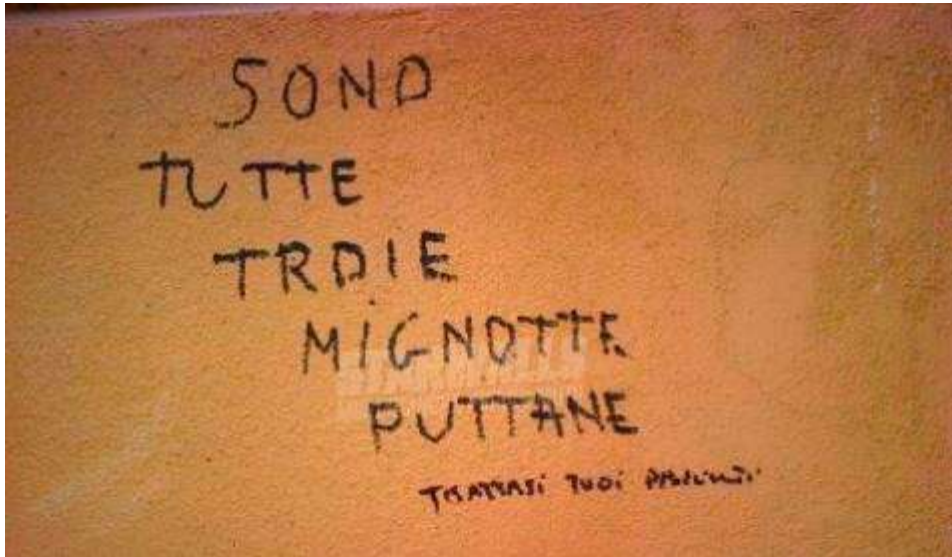 SONO
TUTTE
TROIE
MIGNOTTE
PUTTANE
TRATTASI TUOI